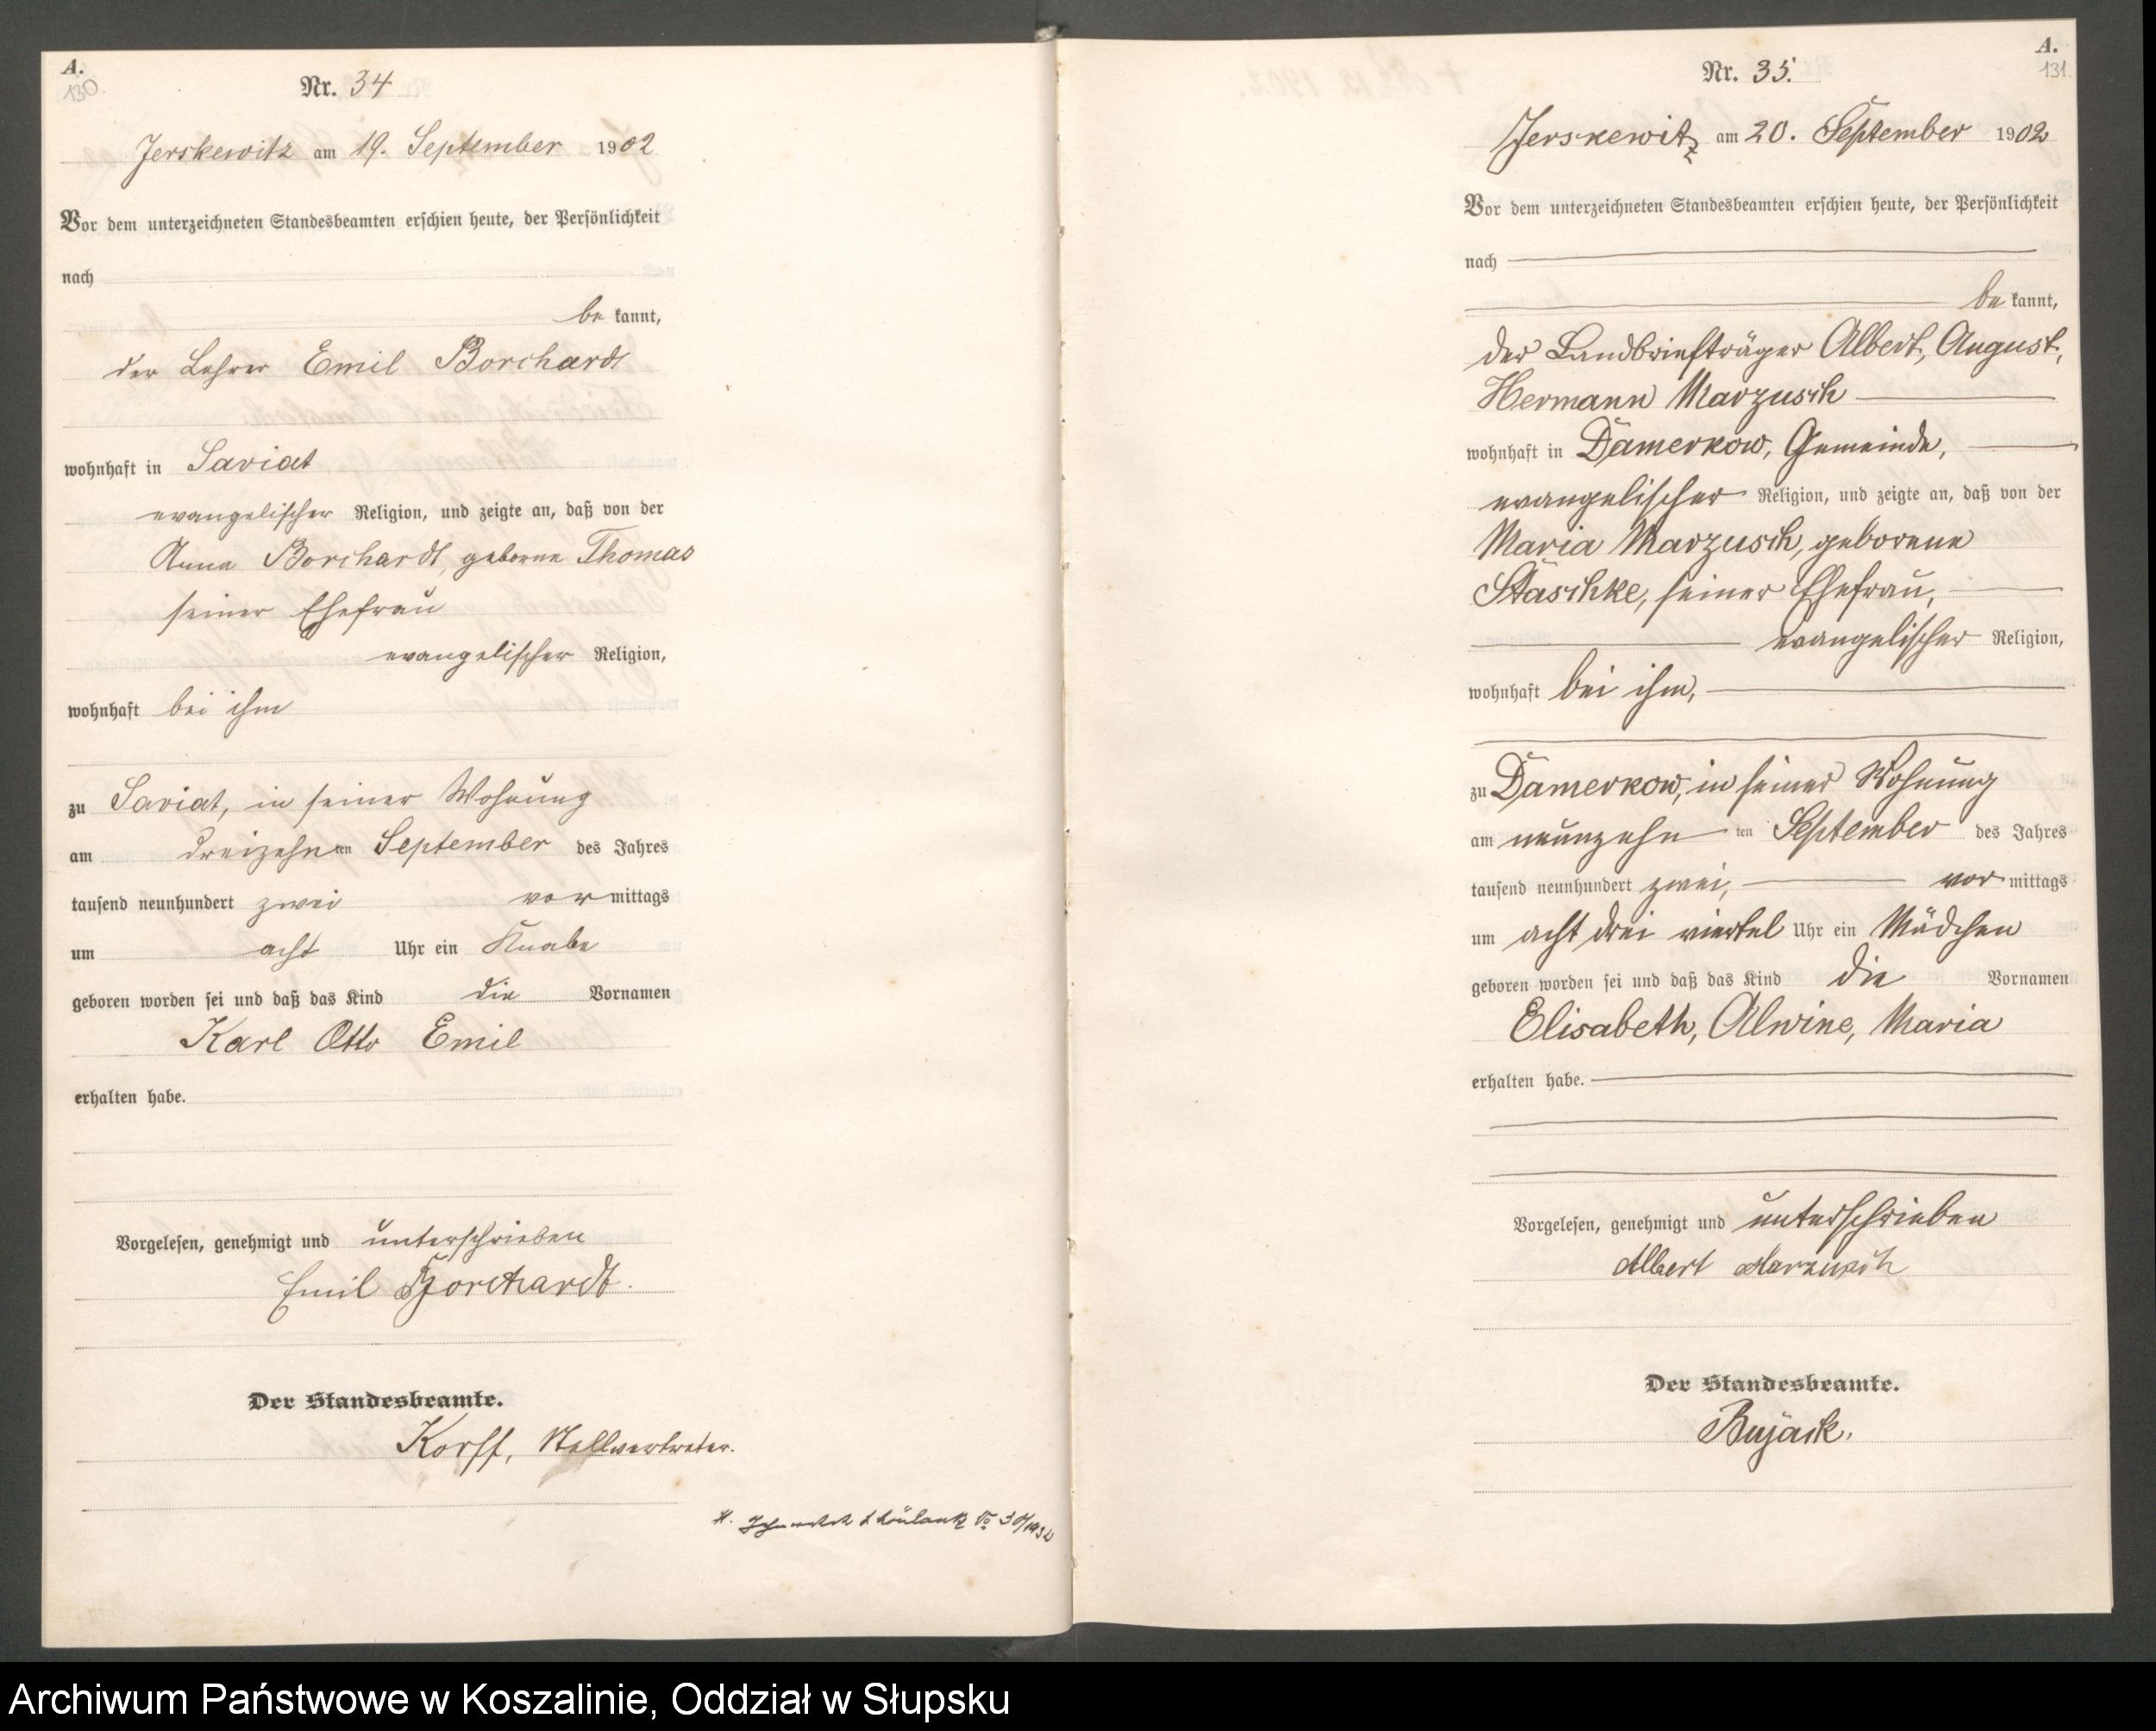 A.
130.
Nr. 34
Jerskewitz am 19. September 1902
Vor dem unterzeichneten Standesbeamten erschien heute, der Persönlichkeit
nach
be kannt,
der Lehrer Emil Borchardt
wohnhaft in Saviat
evangelischer Religion, und zeigte an, daß von der
Anna Borchardt, geborne Thomas
seiner Ehefrau
evangelischer Religion,
wohnhaft bei ihm
zu Saviat, in seiner Wohnung
am dreizehn ten September des Jahres
tausend neunhundert zwei vor mittags
um acht Uhr ein Knabe
geboren worden sei und daß das Kind die Vornamen
Karl Otto Emil
erhalten habe.
Vorgelesen, genehmigt und unterschrieben
Emil Borchardt.
Der Standesbeamte.
Korff, Stellvertreter.
A.
131.
Nr. 35.
Jerskewitz am 20. September 1902
Vor dem unterzeichneten Standesbeamten erschien heute, der Persönlichkeit
nach
be kannt,
der Landbriefträger Albert, August,
Hermann Marzusch
wohnhaft in Damerkow, Gemeinde,
evangelischer Religion, und zeigte an, daß von der
Maria Marzusch, geborene
Stäschke, seiner Ehefrau,
evangelischer Religion,
wohnhaft bei ihm,
zu Damerkow, in seiner Wohnung
am neunzehn ten September des Jahres
tausend neunhundert zwei, vor mittags
um acht drei viertel Uhr ein Mädchen
geboren worden sei und daß das Kind die Vornamen
Elisabeth, Alwine, Maria
erhalten habe.
Vorgelesen, genehmigt und unterschrieben
Albert Marzusch
Der Standesbeamte.
Bujack.
Archiwum Państwowe w Koszalinie, Oddział w Słupsku